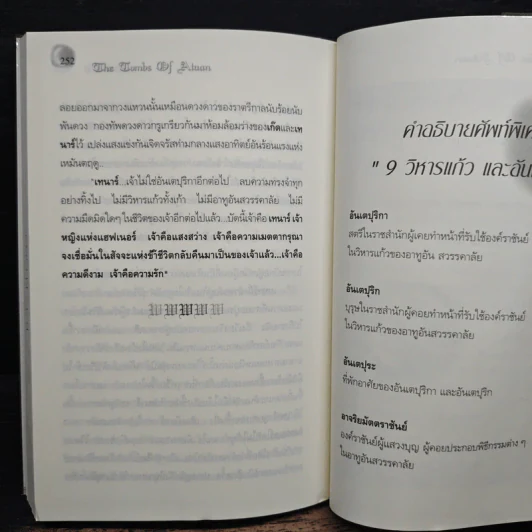 252
The Tombs Of Atuan
ลอยออกมาจากวงแหวนนั้นเหมือนดวงดาวของราตรีกาลนับร้อยนับ
พันดวง กองทัพดวงดาวกรูเกรียวกันมาห้อมล้อมร่างของเก็ดและเท
นาร์ไว้ เปล่งแสงแข่งกันเจิดจรัสท่ามกลางแสงอาทิตย์อันร้อนแรงแห่ง
เหมันตฤดู..
"เทนาร์...เจ้าไม่ใช่อันเตปุริกาอีกต่อไป ลบความทรงจำทุก
อย่างทิ้งไป ไม่มีวิหารแก้วทั้งเก้า ไม่มีอาทูอันสวรรคาลัย ไม่มี
ความมืดมิดใดๆ ในชีวิตของเจ้าอีกต่อไปแล้ว...บัดนี้เจ้าคือ เทนาร์ เจ้า
หญิงแห่งแฮฟเนอร์ เจ้าคือแสงสว่าง เจ้าคือความเมตตากรุณา
จงเชื่อมั่นในสัจจะแห่งข้าชีวิตกลับคืนมาเป็นของเจ้าแล้ว...เจ้าคือ
ความดีงาม เจ้าคือความรัก"
WWWWW
คำอธิบายศัพท์พิเศ
" 9 วิหารแก้ว และอัน
อันเตปุริกา
สตรีในราชสำนักผู้เคยทำหน้าที่รับใช้องค์ราชันย์
ในวิหารแก้วของอาทูอัน สวรรคาลัย
อันเตปุริก
บุรุษในราชสำนักผู้คอยทำหน้าที่รับใช้องค์ราชันย์
ในวิหารแก้วของอาทูอันสวรรคาลัย
อันเตปุระ
ที่พักอาศัยของอันเตปุริกา และอันเตปุริก
อาจริยมัตตราชันย์
องค์ราชันย์ผู้แสวงบุญ ผู้คอยประกอบพิธีกรรมต่าง ๆ
ในอาทูอันสวรรคาลัย